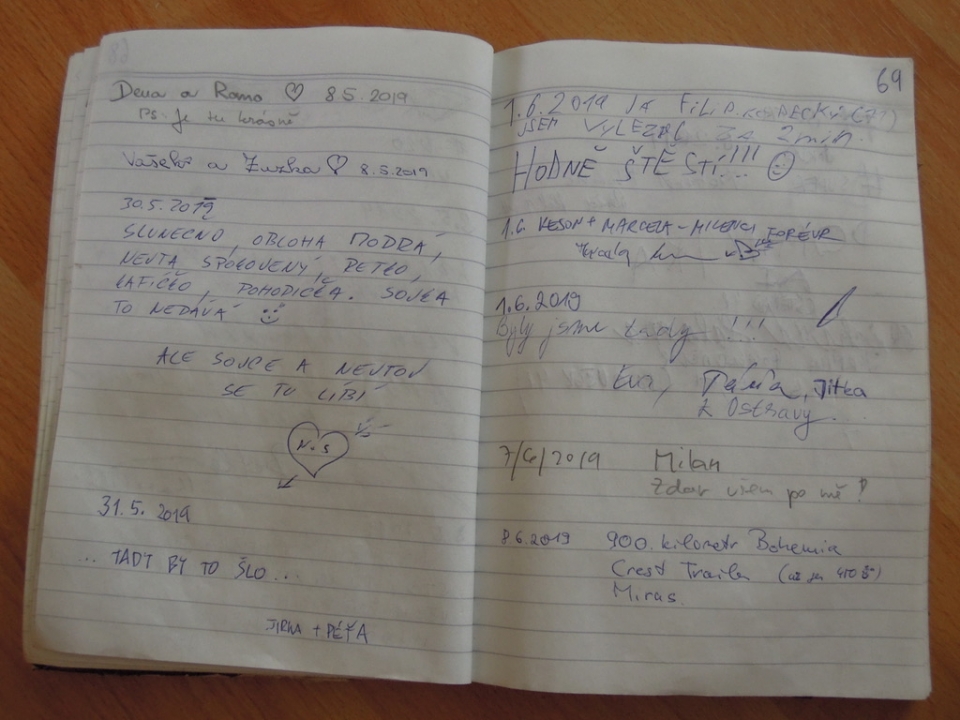 Dena a Ramo ♡ 8.5.2019
Ps. Je tu krásně
Vašek a Zuzka ♡ 8.5.2019
30.5.2019
SLUNEČNO, OBLOHA MODRÁ,
PETKO,
KAFÍČKO, POHODIČKA.
TO NEDÁVÁ
ALE SONCE A NEUTON
SE TU LÍBÍ
N+S
31.5.2019
.. TADY BY TO ŠLO ..
JIRKA + PÉŤA
69
1.6.2019 JÁ FILIP
JSEM VYLEZL ZA 2 min.
HODNĚ ŠTĚSTÍ!!!
1.6. KESON + MARCELA - MILENCI FORÉVR
1.6.2019
Byly jsme tady !!!
Táňa, Jitka
z Ostravy.
7/6/2019 Milan
Zdar všem po mě!
8.6.2019 900. kilometr Bohemia
Crest Trailu
Miras.